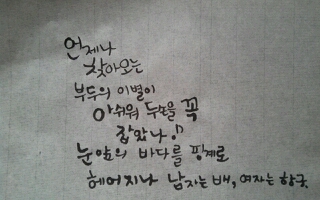 언제나
찾아오는
부두의 이별이
아쉬워 두손을 꼭
잡았나♪
눈앞의 바다를 핑계로
헤어지나 남자는배, 여자는 항구.